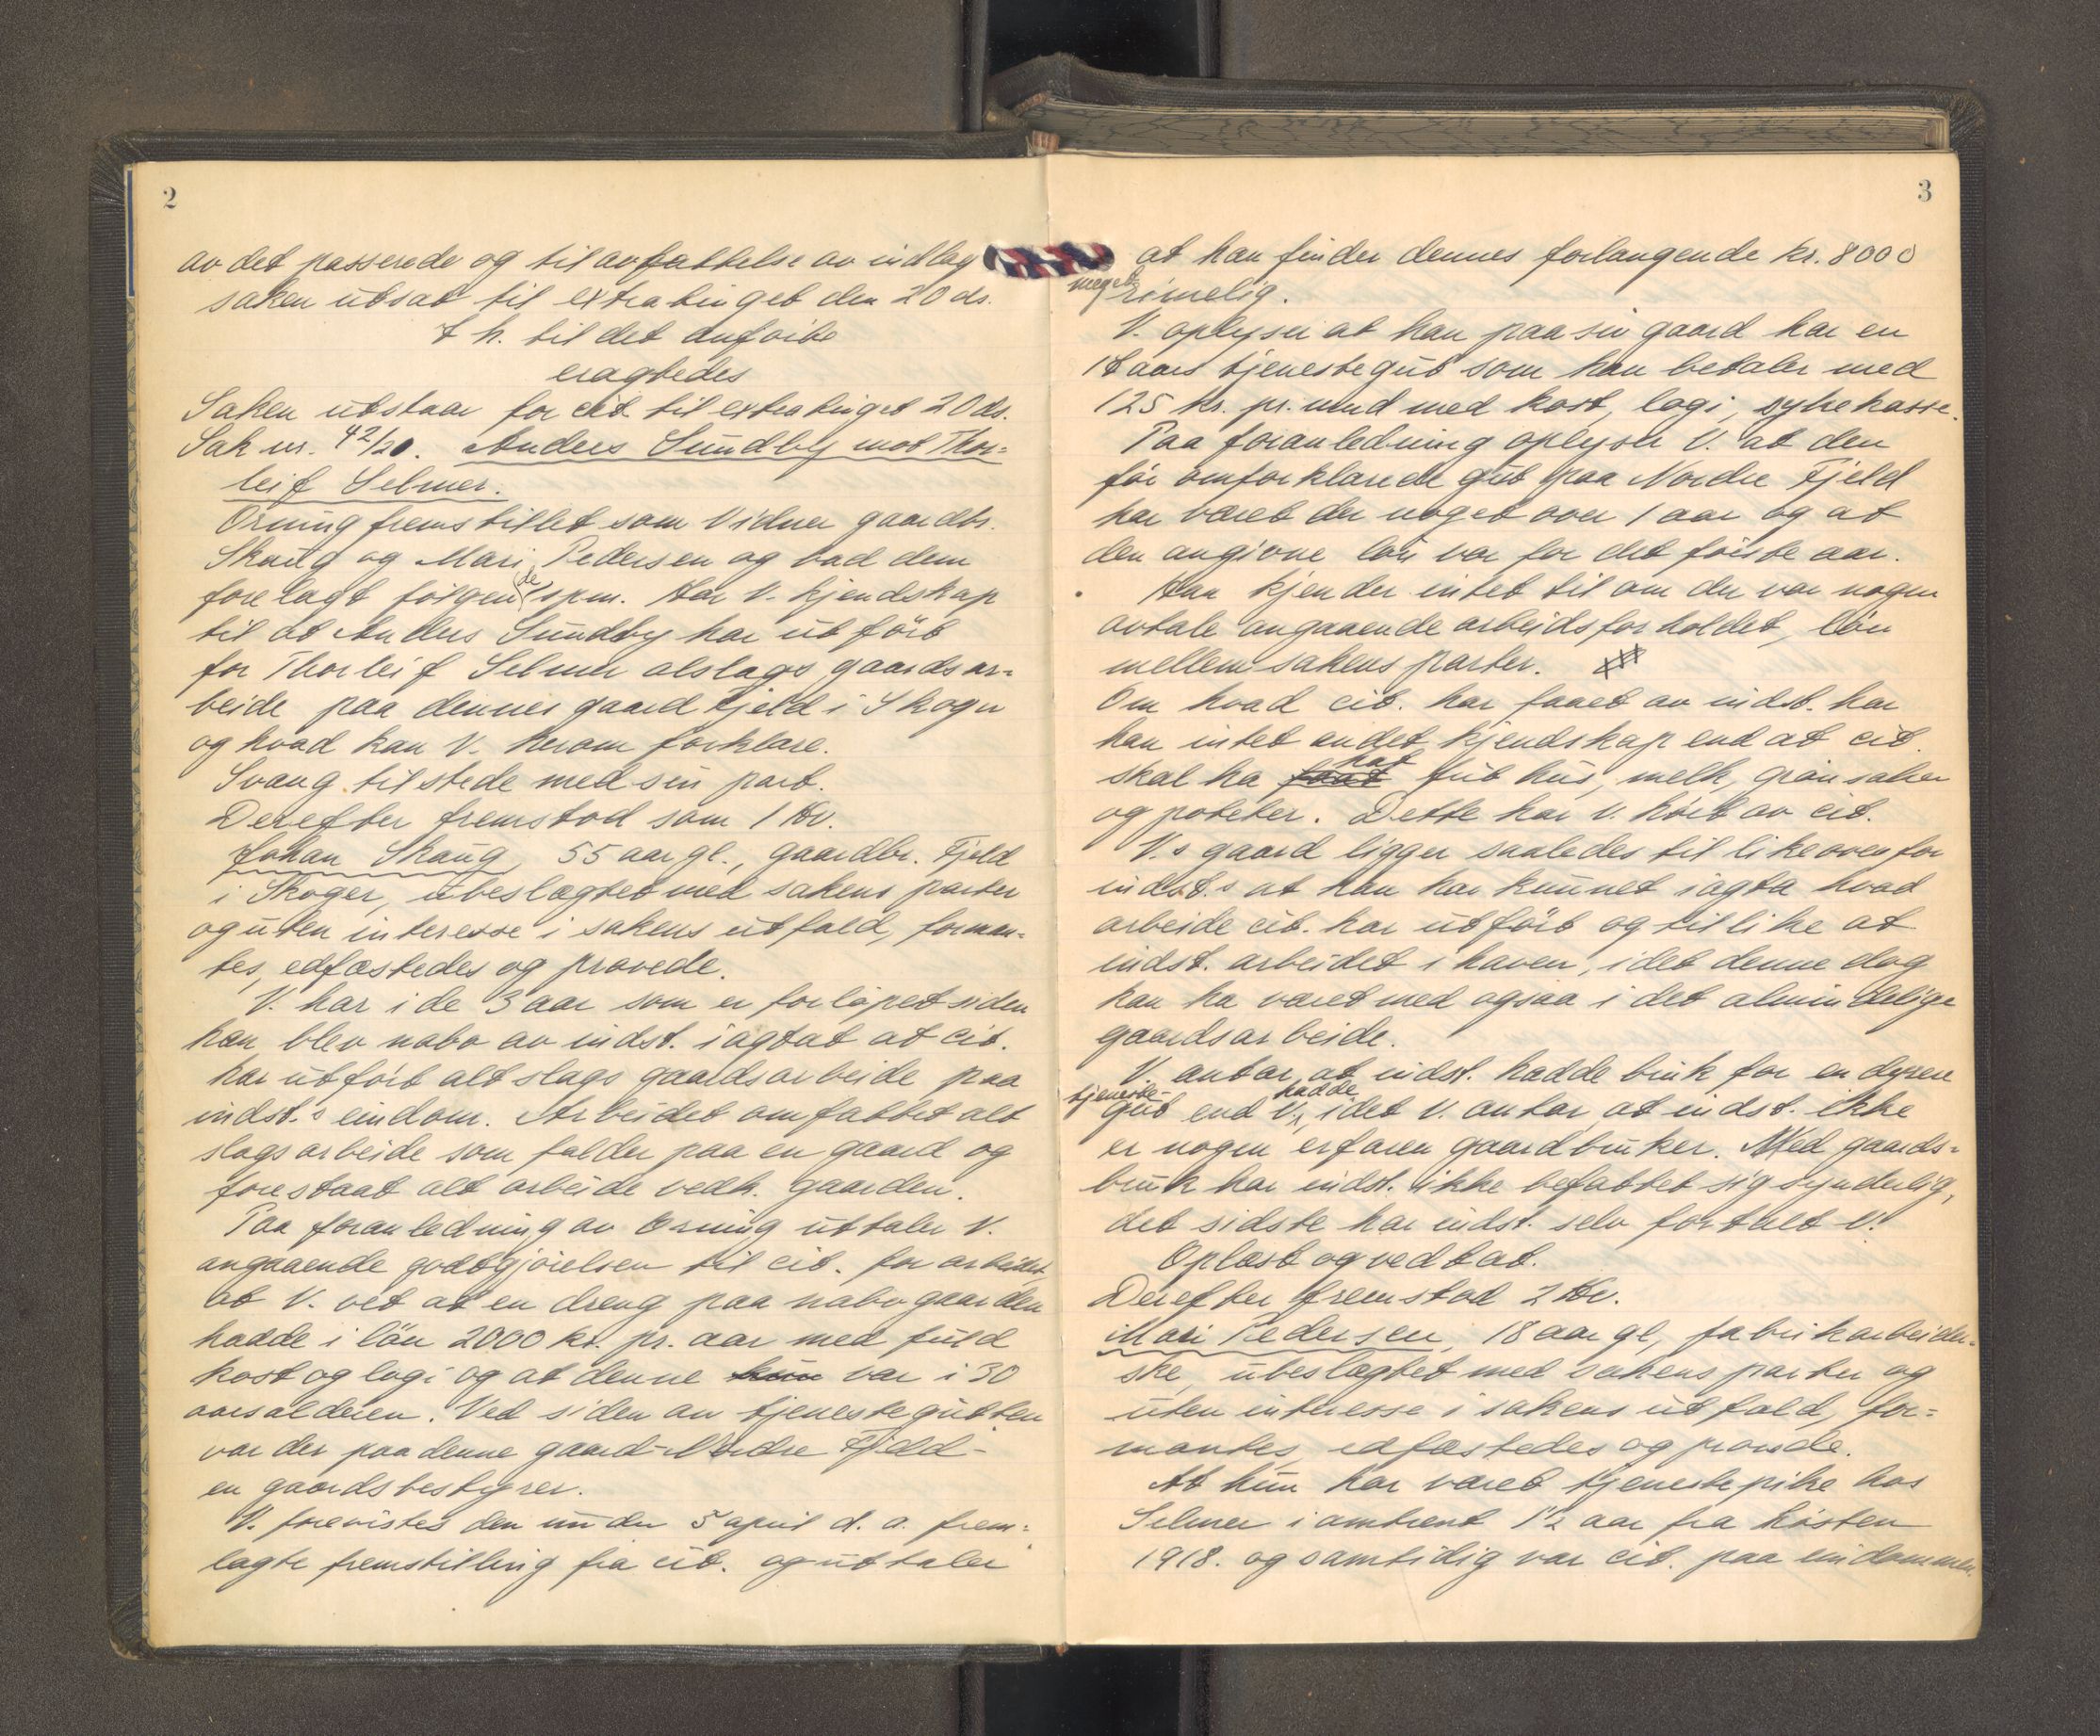 2
av det passerede og til avfattelse av indlag
saken utsat til extratinget den 20 ds.
I h. til det anførte
eragtedes
Saken utstaar for cit. til extratinget 20 ds.
Sak nr. 42/20. Anders Sundby mot Thor=
leif Selmer.
Örning fremstillet som Vidner gaardbr.
Skaug og Mari Pedersen og bad dem
forelagt følgende spm. Har V. kjendskap
til at Anders Sundby har utført
for Thorleif Selmer alslags gaardsar=
beide paa dennes gaard Fjeld i Skoger
og hvad kan V. herom forklare.
Svang tilstede med sin part.
Derefter fremstod som 1 Hv.
Johan Skaug, 55 aar gl., gaardbr. Fjeld
i Skoger, ubeslægtet med sakens parter
og uten interesse i sakens utfald, forman=
tes, edfæstedes og provede.
V. har i de 3 aar som er forløpet siden
han blev nabo av indst. iagtat at cit.
har utført alt slags gaardsarbeide paa
indst.s eindom. Arbeidet omfattet alt
slags arbeide som falder paa en gaard og
forestaat alt arbeide vedk. gaarden.
Paa foranledning av Örning uttaler V.
angaaende godtgjörelsen til cit. for arbeidet
at V. vet at en dreng paa nabogaarden
hadde i lön 2000 kr. pr. aar med fuld
kost og logi og at denne kun var i 30
aarsalderen. Ved siden av tjenestegutten
var der paa denne gaard - Nordre Fjeld -
en gaardsbestyrer.
V. forevistes den under 5 april d. a. frem=
lagte fremstilling fra cit. og uttaler
3
at han finder dennes forlangende kr. 8000
meget rimelig.
V. oplyser at han paa sin gaard har en
18 aars tjenestegut som han betaler med
125 kr. pr. mnd med kost, logi, sykekasse.
Paa foranledning oplyser V. at den
før omforklarede gut paa Nordre Fjeld
har været der noget over 1 aar og at
den angivne løn var for det første aar.
Han kjender intet til om der var nogen
avtale angaaende arbeidsforholdet, løn
mellem sakens parter.
Om hvad cit. har faaet av indst. har
han intet andet kjendskap end at cit.
skal ha faat hat frit hus, melk, grønsaker
og poteter. Dette har V. hørt av cit.
V.s gaard ligger saaledes til likeoverfor
indst.s at han har kunnet iagta hvad
arbeide cit. har utført og tillike at
indst. arbeidet i haven, idet denne dog
kan ha været med ogsaa i det almindelige
gaardsarbeide.
V. antar at indst. hadde bruk for en dyrere
tjeneste-
gut end V. hadde, idet V. antar at indst. ikke
er nogen erfaren gaardbruker. Med gaards=
bruk har indst. ikke befattet sig synderlig,
det sidste har indst. selv fortalt V.
Oplæst og vedtat.
Derefter fremstod 2 Hv.
Mari Pedersen, 18 aar gl, fabrikarbeider=
ske, ubeslægtet med sakens parter og
uten interesse i sakens utfald, for=
mantes, edfæstedes og provede.
At hun har været tjenestepike hos
Selmer i omtrent 1½ aar fra høsten
1918. og samtidig var cit. paa eindommen.